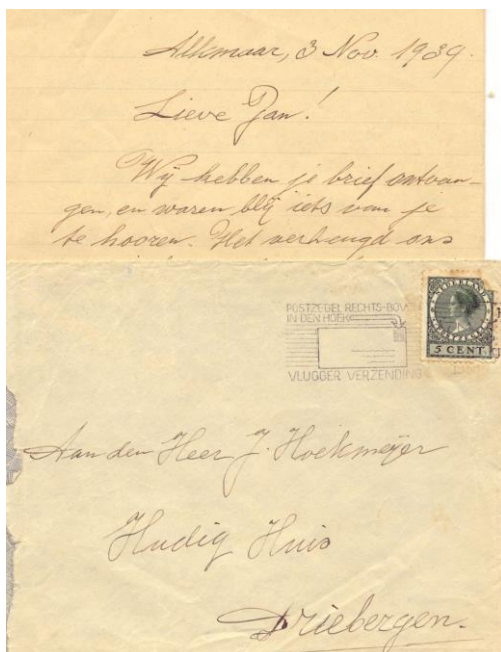 Alkmaar, 3 Nov. 1939.
Lieve Jan!
Wij hebben je brief ontvan-
gen, en waren blij iets van je
te hooren. Het verheugd ons
POSTZEGEL RECHTS-BOVEN
IN DEN HOEK
VLUGGER VERZENDING
NEDERLAND
5 CENT
Aan den Heer J. Hoekmeijer
Hudig Huis
Driebergen.